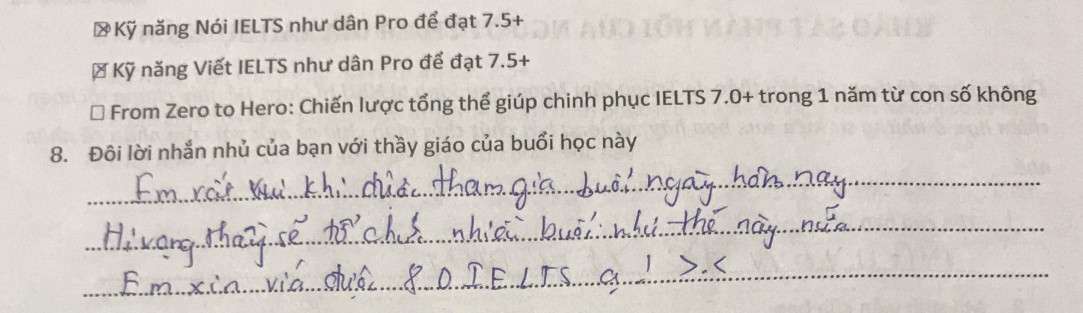 ☒ Kỹ năng Nói IELTS như dân Pro để đạt 7.5+
☒ Kỹ năng Viết IELTS như dân Pro để đạt 7.5+
☐ From Zero to Hero: Chiến lược tổng thể giúp chinh phục IELTS 7.0+ trong 1 năm từ con số không
8. Đôi lời nhắn nhủ của bạn với thầy giáo của buổi học này
Em rất vui khi được tham gia buổi ngày hôm nay
Hi vọng thầy sẽ tổ chức nhiều buổi như thế này nữa
Em xin vía được 8.0 IELTS ạ! >.<